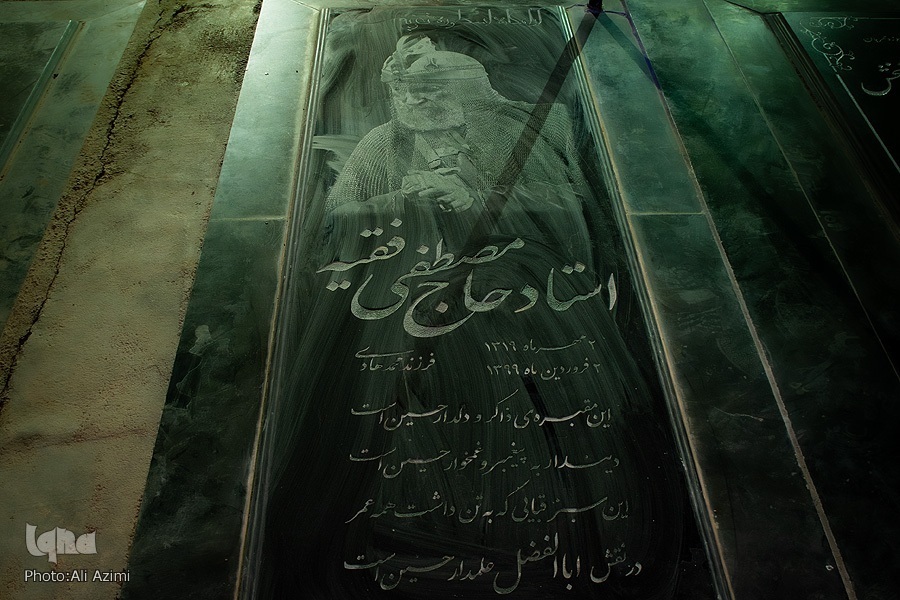 استاد حاج مصطفی فقیه
۲ مهر ماه ۱۳۱۹
۲ فروردین ماه ۱۳۹۹
فرزند محمدهادی
این مقبره‌ی ذاکر و دلدار حسین است
دیندار به پیغمبر و غمخوار حسین است
این سبز قبایی که به تن داشت همه عمر
در نقش اباالفضل علمدار حسین است
Iqna
Photo:Ali Azimi